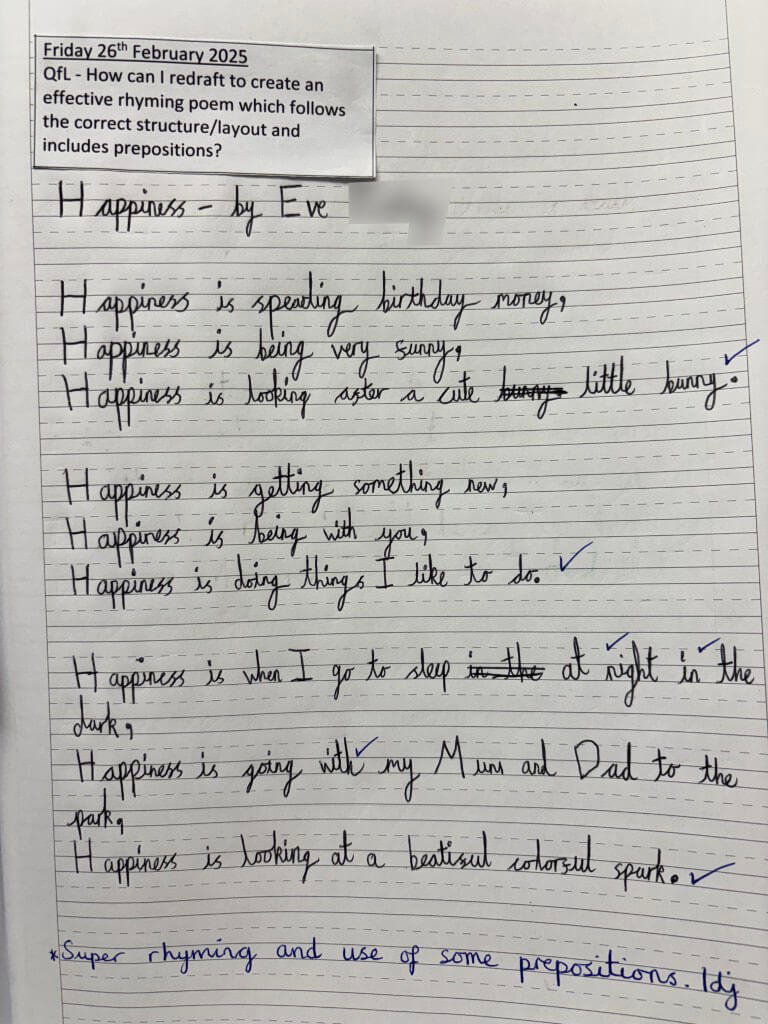 Friday 26th February 2025
QfL - How can I redraft to create an
effective rhyming poem which follows
the correct structure/layout and
includes prepositions?
Happiness - by Eve
Happiness is spending birthday money,
Happiness is being very sunny,
Happiness is looking after a cute bunny little bunny.
Happiness is getting something new,
Happiness is being with you,
Happiness is doing things I like to do.
Happiness is when I go to sleep in the at night in the
dark,
Happiness is going with my Mum and Dad to the
park,
Happiness is looking at a beatiful colorful spark.
*Super rhyming and use of some prepositions. ldj